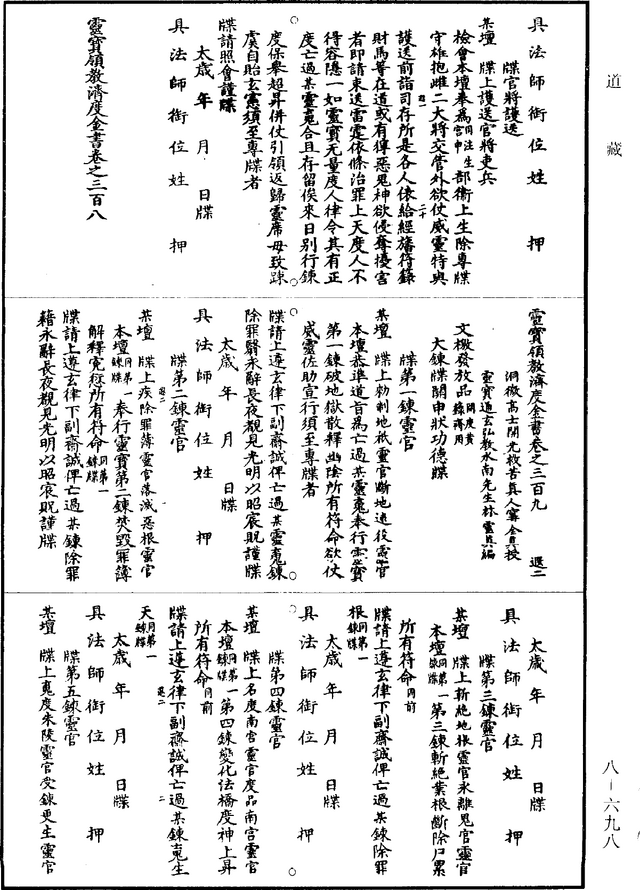 道藏
具法師銜位姓　押
牒官將護送
某壇　牒上護送官將吏兵
檢會本壇奉為同注生宮中部衛上生除專牒
守雄抱雌二大將交管外欲仗威靈特與
護送前詣司存所是各人依給經旛符籙
財馬等在道或有獰惡鬼神欲侵奪擾害
者即請束送雷霆依條治罪上天度人不
得容隱一如靈寶无量度人律令其有正
度亡過某靈䰟合且存留俟來日別行鍊
度保舉超昇併仗引領返歸靈席毋致踈
虞自貽玄憲須至專牒者
牒請照會謹牒
太歲　年　月　日牒
具法師銜位姓　押
靈寶領教濟度金書卷之三百八
靈寶領教濟度金書卷之三百九　退二
洞微高士開光救苦真人甯全真授
靈寶通玄弘教水南先生林靈真編
文檄發放品開度黃籙齋用
大鍊牒關申狀功德牒
牒第一鍊靈官
某壇　牒上勑制地祇靈官斷地逮役靈官
本壇恭準道旨為亡過某靈䰟奉行靈寶
第一鍊破地獄散釋幽陰所有符命欲仗
威靈佐助宣行須至專牒者
牒請上遵玄律下副齋誠俾亡過某靈䰟鍊
除罪翳永辭長夜覩見光明以昭宸貺謹牒
太歲　年　月　日牒
具法師銜位姓　押
牒第二鍊靈官
某壇　牒上疾除罪薄靈官落滅惡根靈官
本壇同第一鍊牒奉行靈寶第二鍊焚毀罪簿
解釋冤愆所有符命同第一鍊牒
牒請上遵玄律下副齋誠俾亡過某鍊除罪
籍永辭長夜覩見光明以昭宸貺謹牒
太歲　年　月　日牒
具法師銜位姓　押
牒第三鍊靈官
某壇　牒上斬絕地根靈官永離鬼官靈官
本壇同第一鍊牒第三鍊斬絕業根斷除尸累
所有符命同前
牒請上遵玄律下副齋誠俾亡過某鍊除罪
根同第一鍊牒
太歲　年　月　日牒
具法師銜位姓　押
牒第四鍊靈官
某壇　牒上名度南宮靈官度品南宮靈官
本壇同第一鍊牒第四鍊變化法橋度神上昇
所有符命同前
牒請上遵玄律下副齋誠俾亡過某鍊䰟生
天同第一鍊牒
太歲　年　月　日牒
具法師銜位姓　押
牒第五鍊靈官
某壇　牒上䰟度朱陵靈官受鍊更生靈官
八－六九八